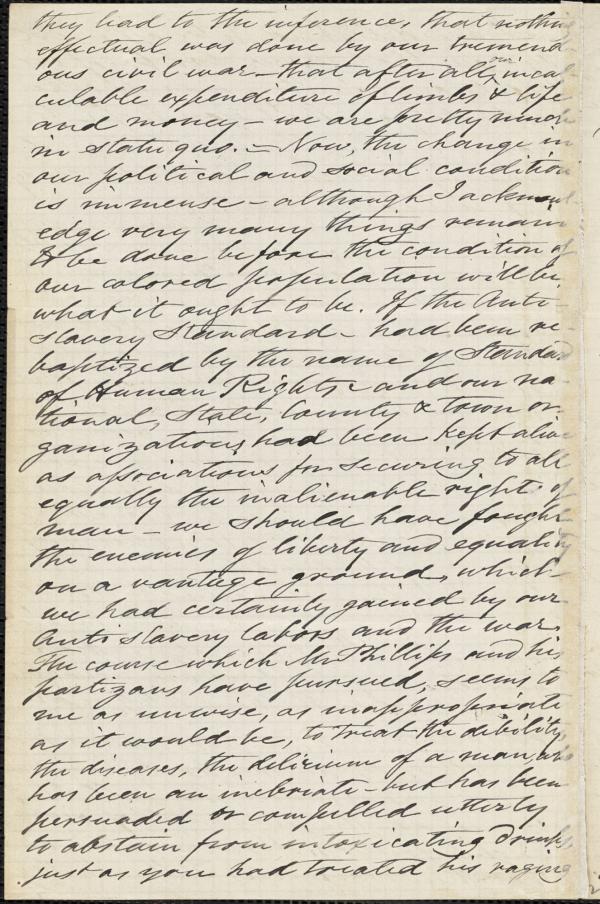 they lead to the inference, that nothing
effectual was done by our tremend-
ous civil war — that after all, our incal-
culable expenditure of limbs & life
and money — we are pretty much
in statu quo. — Now, the change in
our political and social condition
is immense — although I acknowl-
edge very many things remain
to be done before the condition of
our colored population will be
what it ought to be. If the Anti-
Slavery Standard — had been re-
baptized by the name of Standard
of Human Rights — and our na-
tional, State, County & town or-
ganizations had been kept alive
as associations for securing to all
equally the inalienable right of
man — we should have fought
the enemies of liberty and equality
on a vantege ground, which
we had certainly gained by our
Anti slavery labors and the war.
The course which Mr Phillips and his
partizans have pursued, seems to
me as unwise, as inappropriate
as it would be, to treat the dibility,
the diseases, the delirium of a man, who
has been an inebriate — but has been
persuaded or compelled utterly
to abstain from intoxicating drinks,
just as you had treated his raging